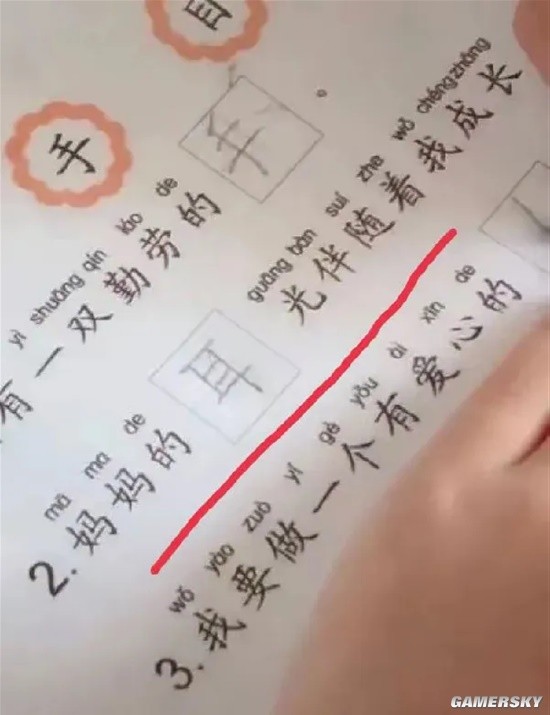 目
手
yì shuāng qín láo de
有一双勤劳的 手
mā ma de guāng bàn suí zhe wǒ chéng zhǎng
2. 妈妈的 耳 光伴随着我成长
wǒ yào zuò yí gè yǒu ài xīn de
3. 我要做一个有爱心的
GAMERSKY